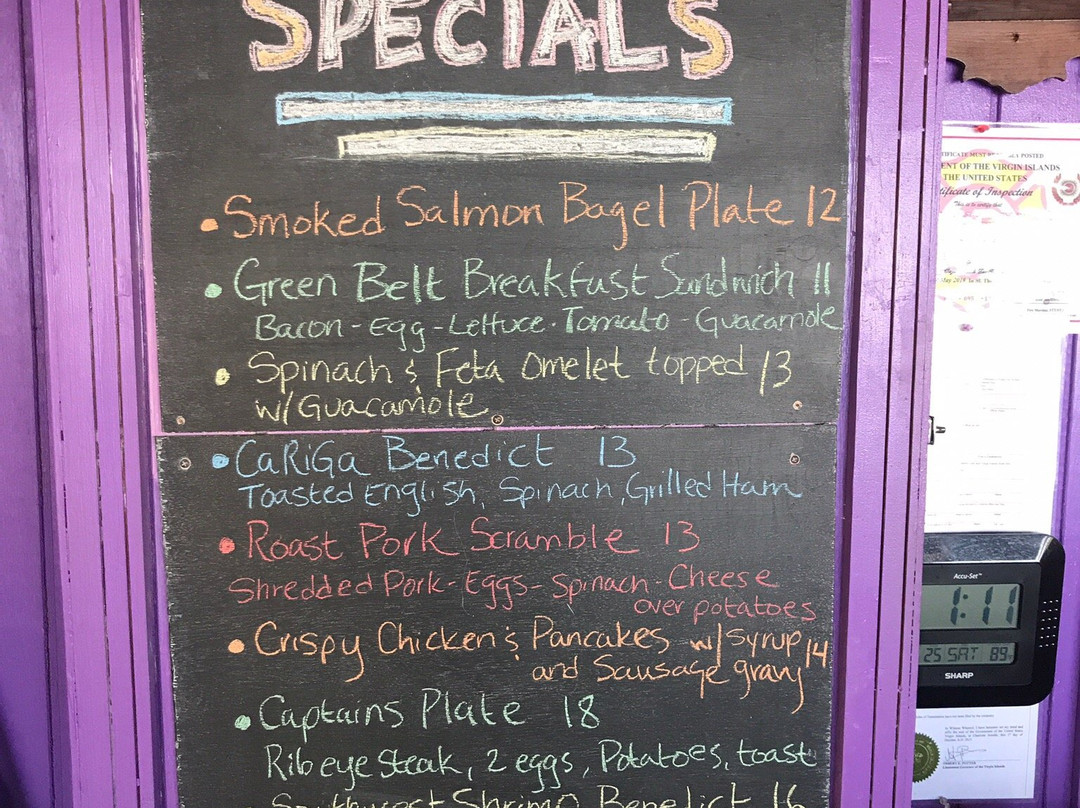 SPECIALS
• Smoked Salmon Bagel Plate 12
• Green Belt Breakfast Sandwich 11
Bacon - Egg - Lettuce - Tomato - Guacamole
• Spinach & Feta Omelet topped 13
w/Guacamole
• CaRiGa Benedict 13
Toasted English, Spinach, Grilled Ham
• Roast Pork Scramble 13
Shredded Pork - Eggs - Spinach - Cheese
over potatoes
• Crispy Chicken & Pancakes w/ syrup 14
and Sausage gravy
• Captains Plate 18
Rib eye steak, 2 eggs, Potatoes, toast
Southwest Shrimp Benedict 16
POSTED
ENT OF THE VIRGIN ISLANDS
THE UNITED STATES
tificate of Inspection
Accu-Set™
1:11
25 SAT 89
SHARP